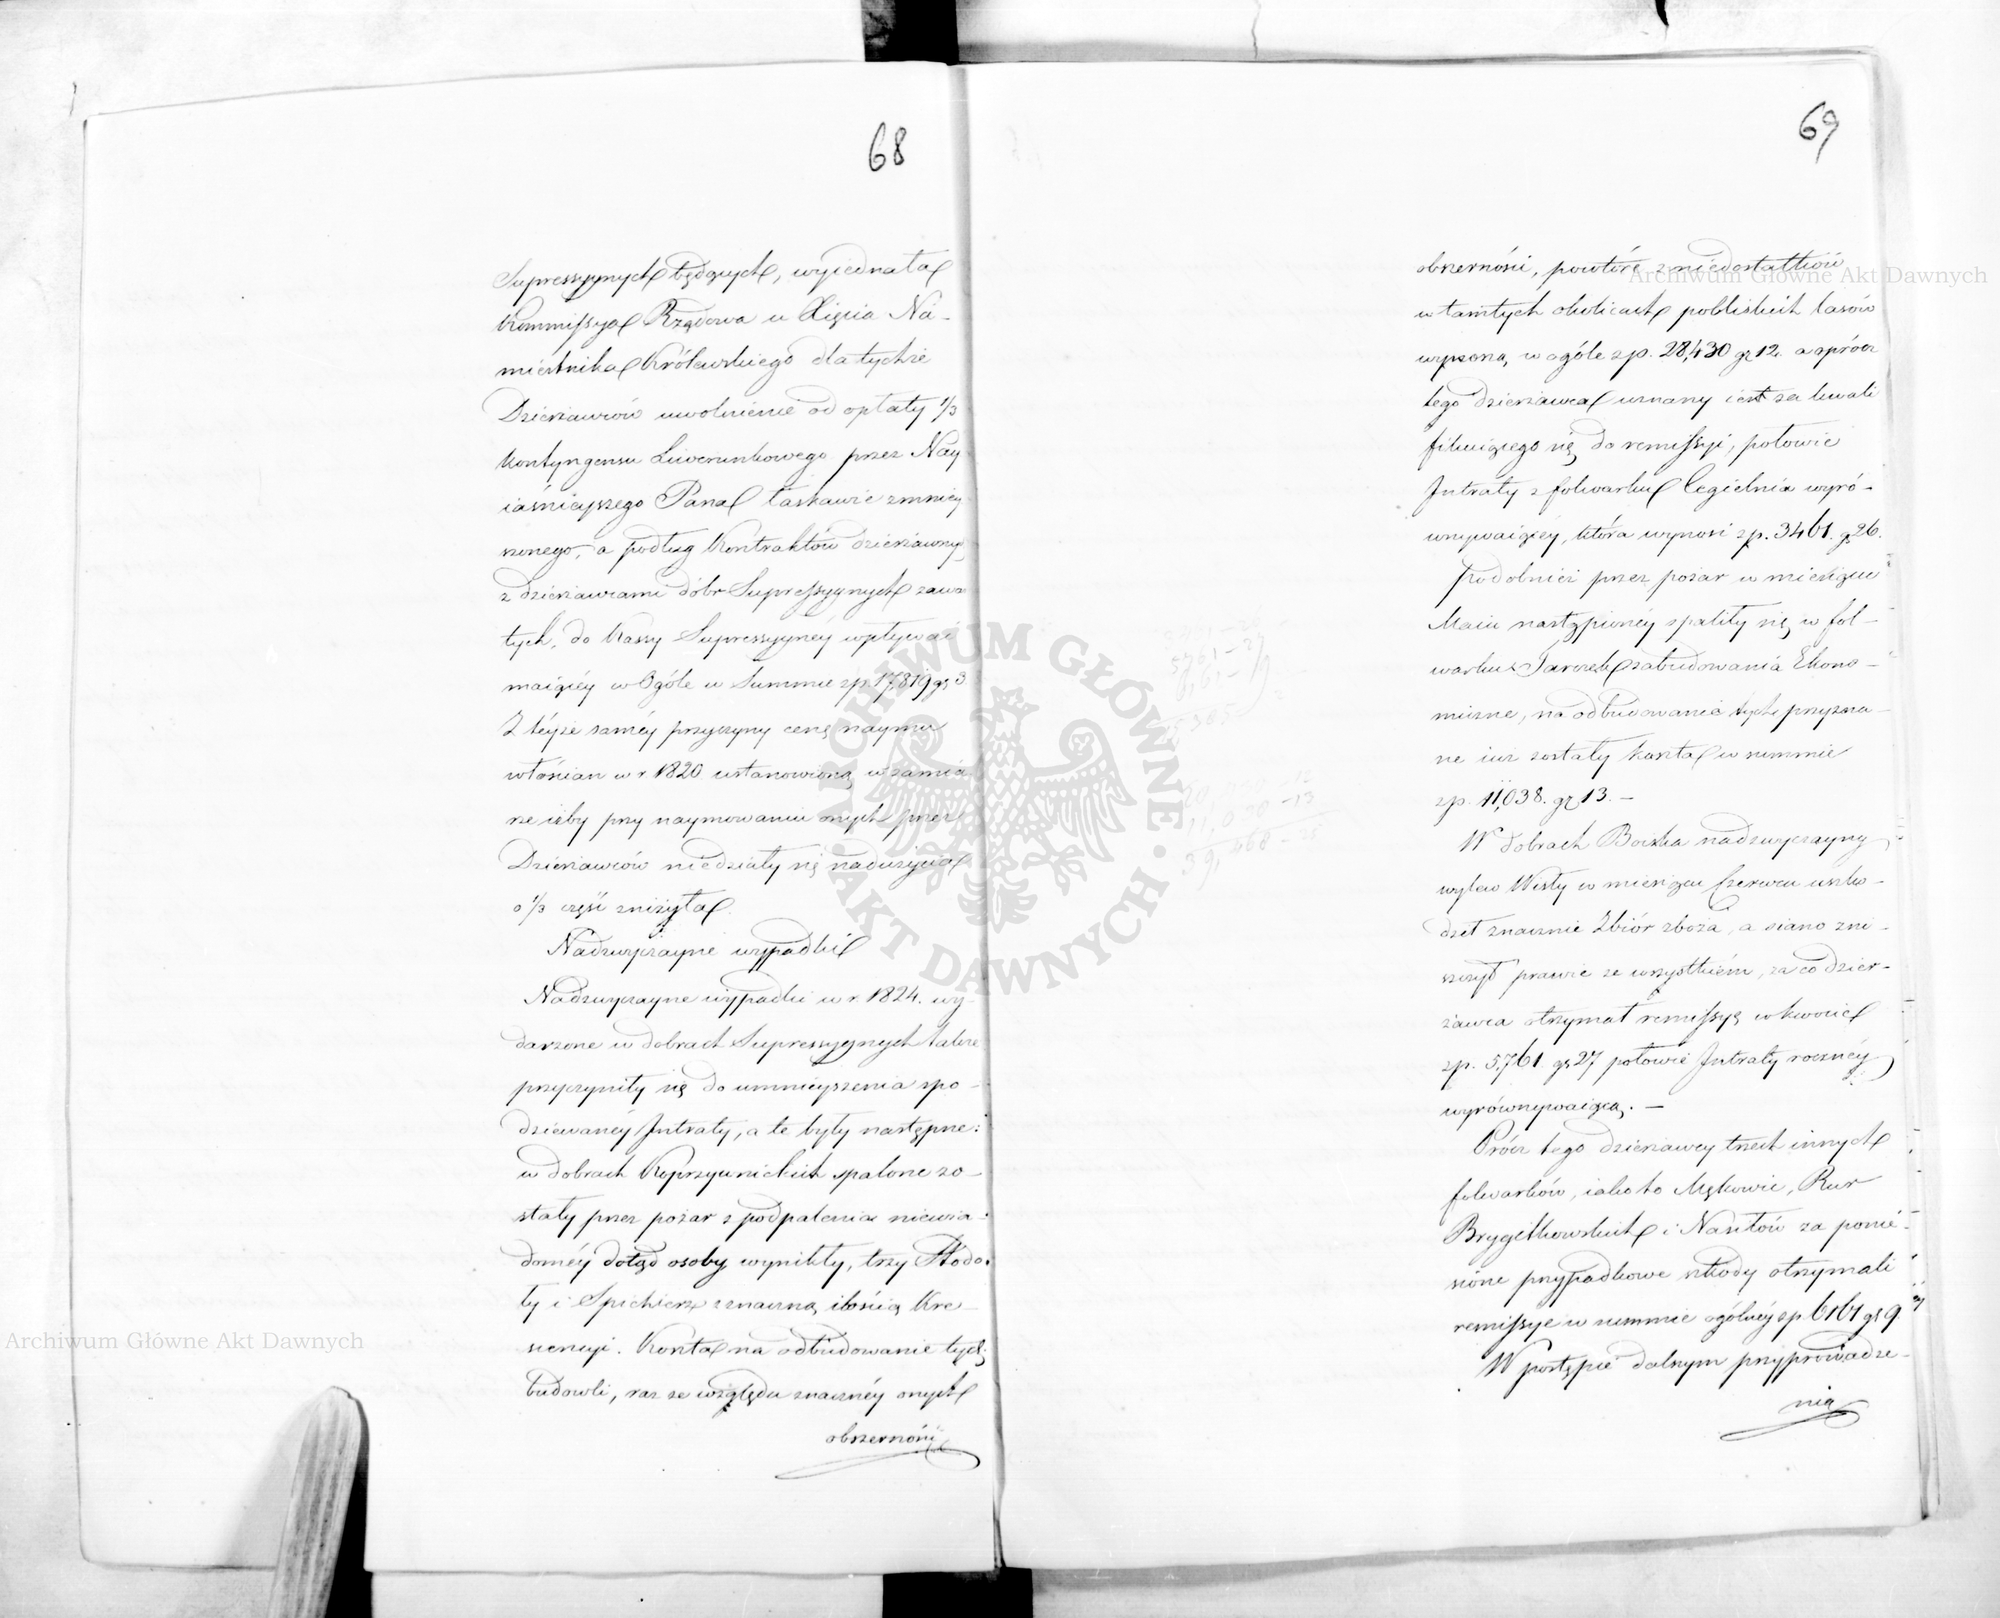 68
Supressyynych będących, wyiednała
Kommissya Rządowa u Xięcia Na-
miestnika Królewskiego dla tychże
Dzierżawców uwolnienie od opłaty 1/3
Kontyngensu Liwerunkowego przez Nay
iaśnieyszego Pana łaskawie zmniey
szonego, a podług Kontraktów dzierżawnych
z dzierżawcami dóbr Supressyynych zawar
tych, do Kassy Supressyynéy wpływać
maiącéy w Ogóle w Summie zp. 17,819 gr 3
Z téyże saméy przyczyny cenę naymu
włościan w r. 1820 ustanowioną w zamia
rze iżby przy naymowaniu onych przez
Dzierżawców niedziały się nadużycia
o 1/3 część zniżyła.
Nadzwyczayne wypadki
Nadzwyczayne wypadki w r. 1824. wy-
darzone w dobrach Supressyynych także
przyczyniły się do umnieyszenia spo-
dziewanéy Intraty, a te były następne:
w dobrach Koprzywnickich spalone zo-
stały przez pożar z podpalenia niewia-
doméy dotąd osoby wynikły, trzy Stodo-
ły i Spichierz z znaczną ilością Kre-
scencyi. Koszta na odbudowanie tych
budowli, raz ze względu znacznéy onych
obszerności
69
obszerności, powtóre z niedostatków
w tamtych okolicach poblizkich lasów
wynoszą, w ogóle zp. 28,430 gr 12. a oprócz
tego dzierżawca uznany iest za kwali
fikuiącego się do remissyi, połowie
Intraty z folwarku Cegielnia wyró-
wnywaiącey, która wynosi zp. 3461. gr 26.
Podobnież przez pożar w miesiącu
Maiu nastąpionéy spaliły się w fol-
warku zabudowania Ekono-
miczne, na odbudowanie tych przyzna-
ne iuż zostały koszta w summie
zp. 11,038. gr 13. –
W dobrach Boiska nadzwyczayny
wylew Wisły w miesiącu Czerwcu uszko-
dził znacznie Zbiór zboża, a siano zni-
szczył prawie ze wszystkiém, za co dzier-
żawca otrzymał remissyę w kwocie
zp. 5,761 gr 27 połowie Intraty rocznéy
wyrównywaiącą. –
Prócz tego dzierżawcy trzech innych
folwarków, iako to Mętowie, Rur
Brygitkowskich i Nasiłów za ponie-
sione przypadkowe szkody otrzymali
remissye w summie ogólnéy zp 6161 gr 9
W postępie dalszym przyprowadze-
nia
5761 – 27
11,030 – 13
39,468 – 25
ARCHIWUM GŁÓWNE · AKT DAWNYCH ·
Archiwum Główne Akt Dawnych
Archiwum Główne Akt Dawnych